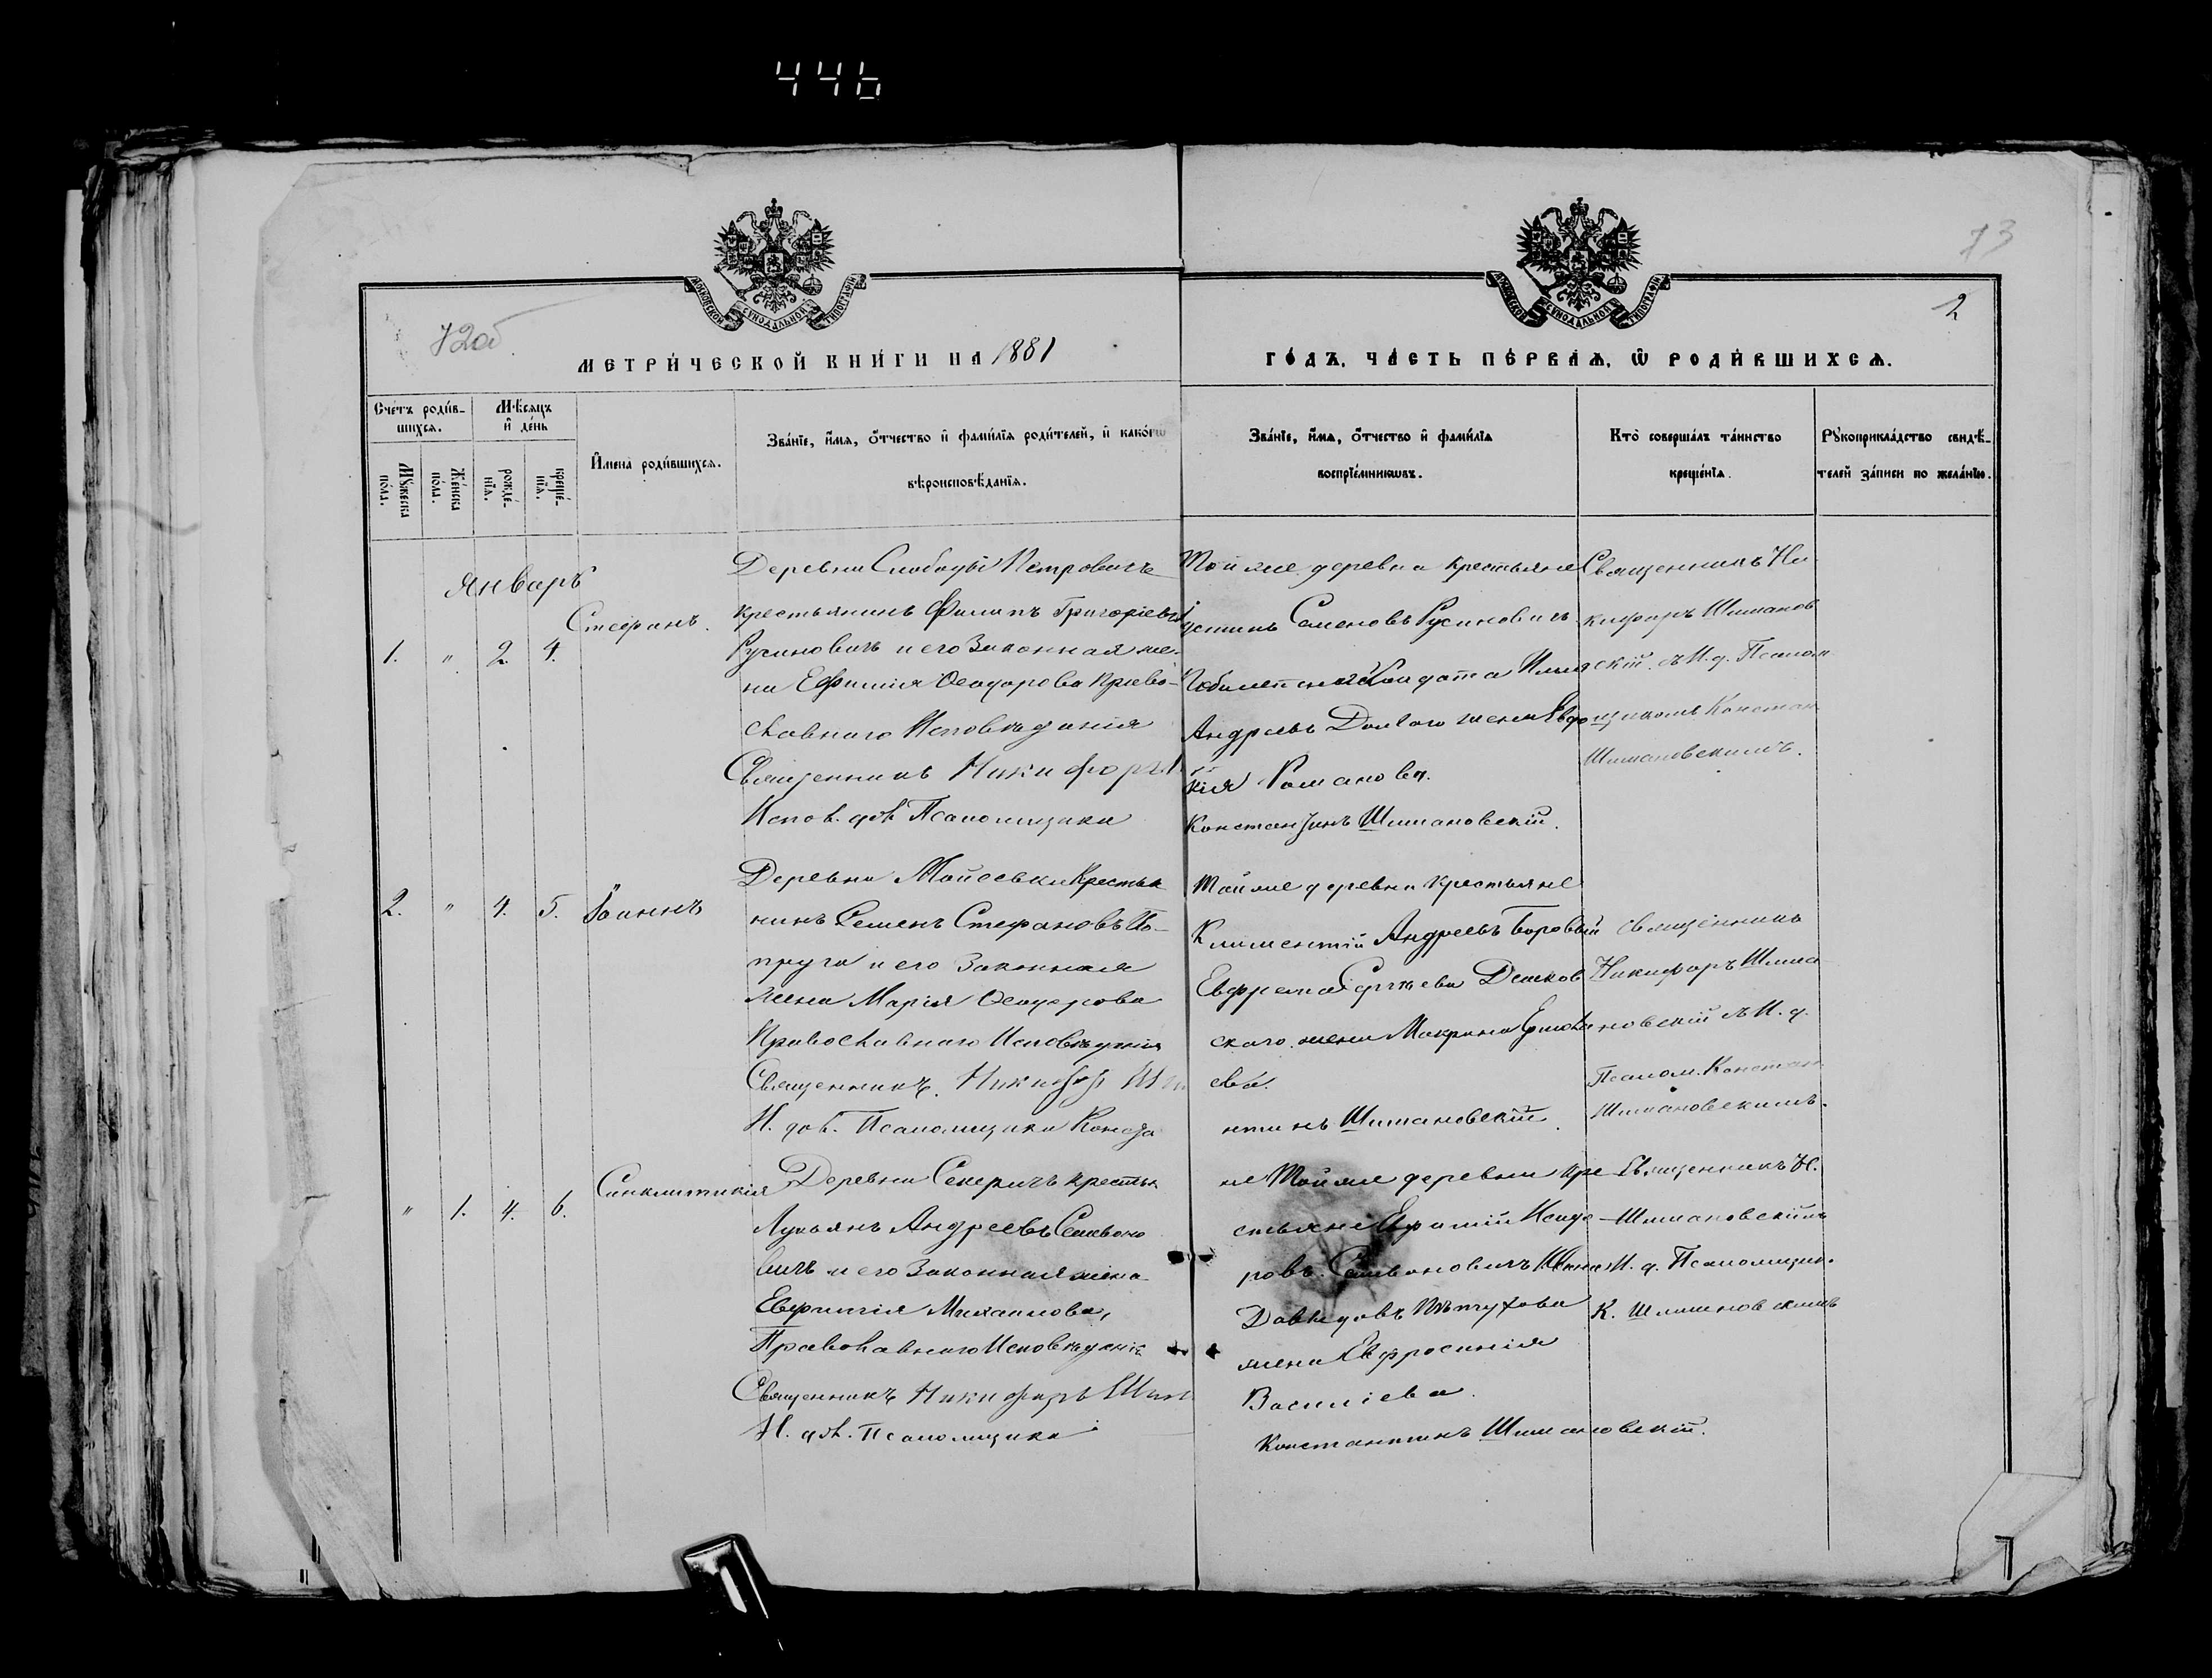 446
73
72об
2
МЕТРИ́ЧЕСКОЙ КНИ́ГИ НА 1881
ГО́ДЪ, ЧА́СТЬ ПЕ́РВАѦ, Ѿ РОДИ́ВШИХСѦ.
МОСКОВСКОЙ СѴНОДАЛЬНОЙ ТИПОГРАФІИ
МОСКОВСКОЙ СѴНОДАЛЬНОЙ ТИПОГРАФІИ
Счетъ роди́в-
шихсѧ.
Мѣ́сѧцъ
и́ де́нь
Мꙋ́жеска по́ла.
Же́нска по́ла.
рожде́-нїѧ.
креще́-нїѧ.
И҆мена̀ роди́вшихсѧ.
Зва́нїе, и҆́мѧ, ѻ҆́тчество и҆ фами́лїѧ роди́телей, и҆ како́гѡ
вѣроисповѣ́данїѧ.
Зва́нїе, и҆́мѧ, ѻ҆́тчество и҆ фами́лїѧ
воспрїе́мникѡвъ.
Кто̀ соверша́лъ та́инство
креще́нїѧ.
Рꙋкоприкла́дство свидѣ́-
телей за́писи по жела́нїю.
Январь
1. " 2. 4.
Стефанъ.
Деревни Слободы Петровичъ
крестьянинъ Филипъ Григоріевъ
Русиновичъ и его законная же-
на Ефимія Ѳеодорова Право-
славнаго Исповѣданія
Священникъ Никифоръ
Испов. дол. Псаломщика
Той же деревни крестьяне
Устинъ Семеновъ Русиновичъ
солдата
Андреевъ Долгаго жена Евдо
кія Романова.
Константинъ Шимановскій.
Священникъ Ни
кифоръ Шиманов
скій съ И. д. Псалом
щикомъ Констан
Шимановскимъ.
2. " 4. 5.
Іоаннъ
Деревни Мойсевки Крестья
нинъ Семенъ Стефановъ По-
пруга и его Законная
жена Марія Ѳеодорова
Православнаго Исповѣданія
Священникъ Никифоръ Ши
И. дол. Псаломщика Конста
Той же деревни крестьяне
Климентій Андреевъ Боровый
Ефрема Сергѣева Деиков
скаго жена Макрина
ева.
нтинъ Шимановскій.
Священникъ
Никифоръ Шима
новскій съ И. д.
Псалом. Констан
Шимановскимъ.
" 1. 4. 6.
Синклитикія
Деревни Секеричъ крестья
Лукьянъ Андреевъ Селивоно
вичъ и его Законная жена
Евфимія Михаилова,
Православнаго Исповѣданія
Священникъ Никифоръ Шим
И. дол. Псаломщика
не Той же деревни кре
стьяне Ефимій Исидо
ровъ Селивоновичъ
Давидовъ Пѣтухова
жена Евфросинія
Василіева.
Константинъ Шимановскій.
Священникъ Н.
Шимановскій съ
И. д. Псаломщик.
К. Шимановскимъ